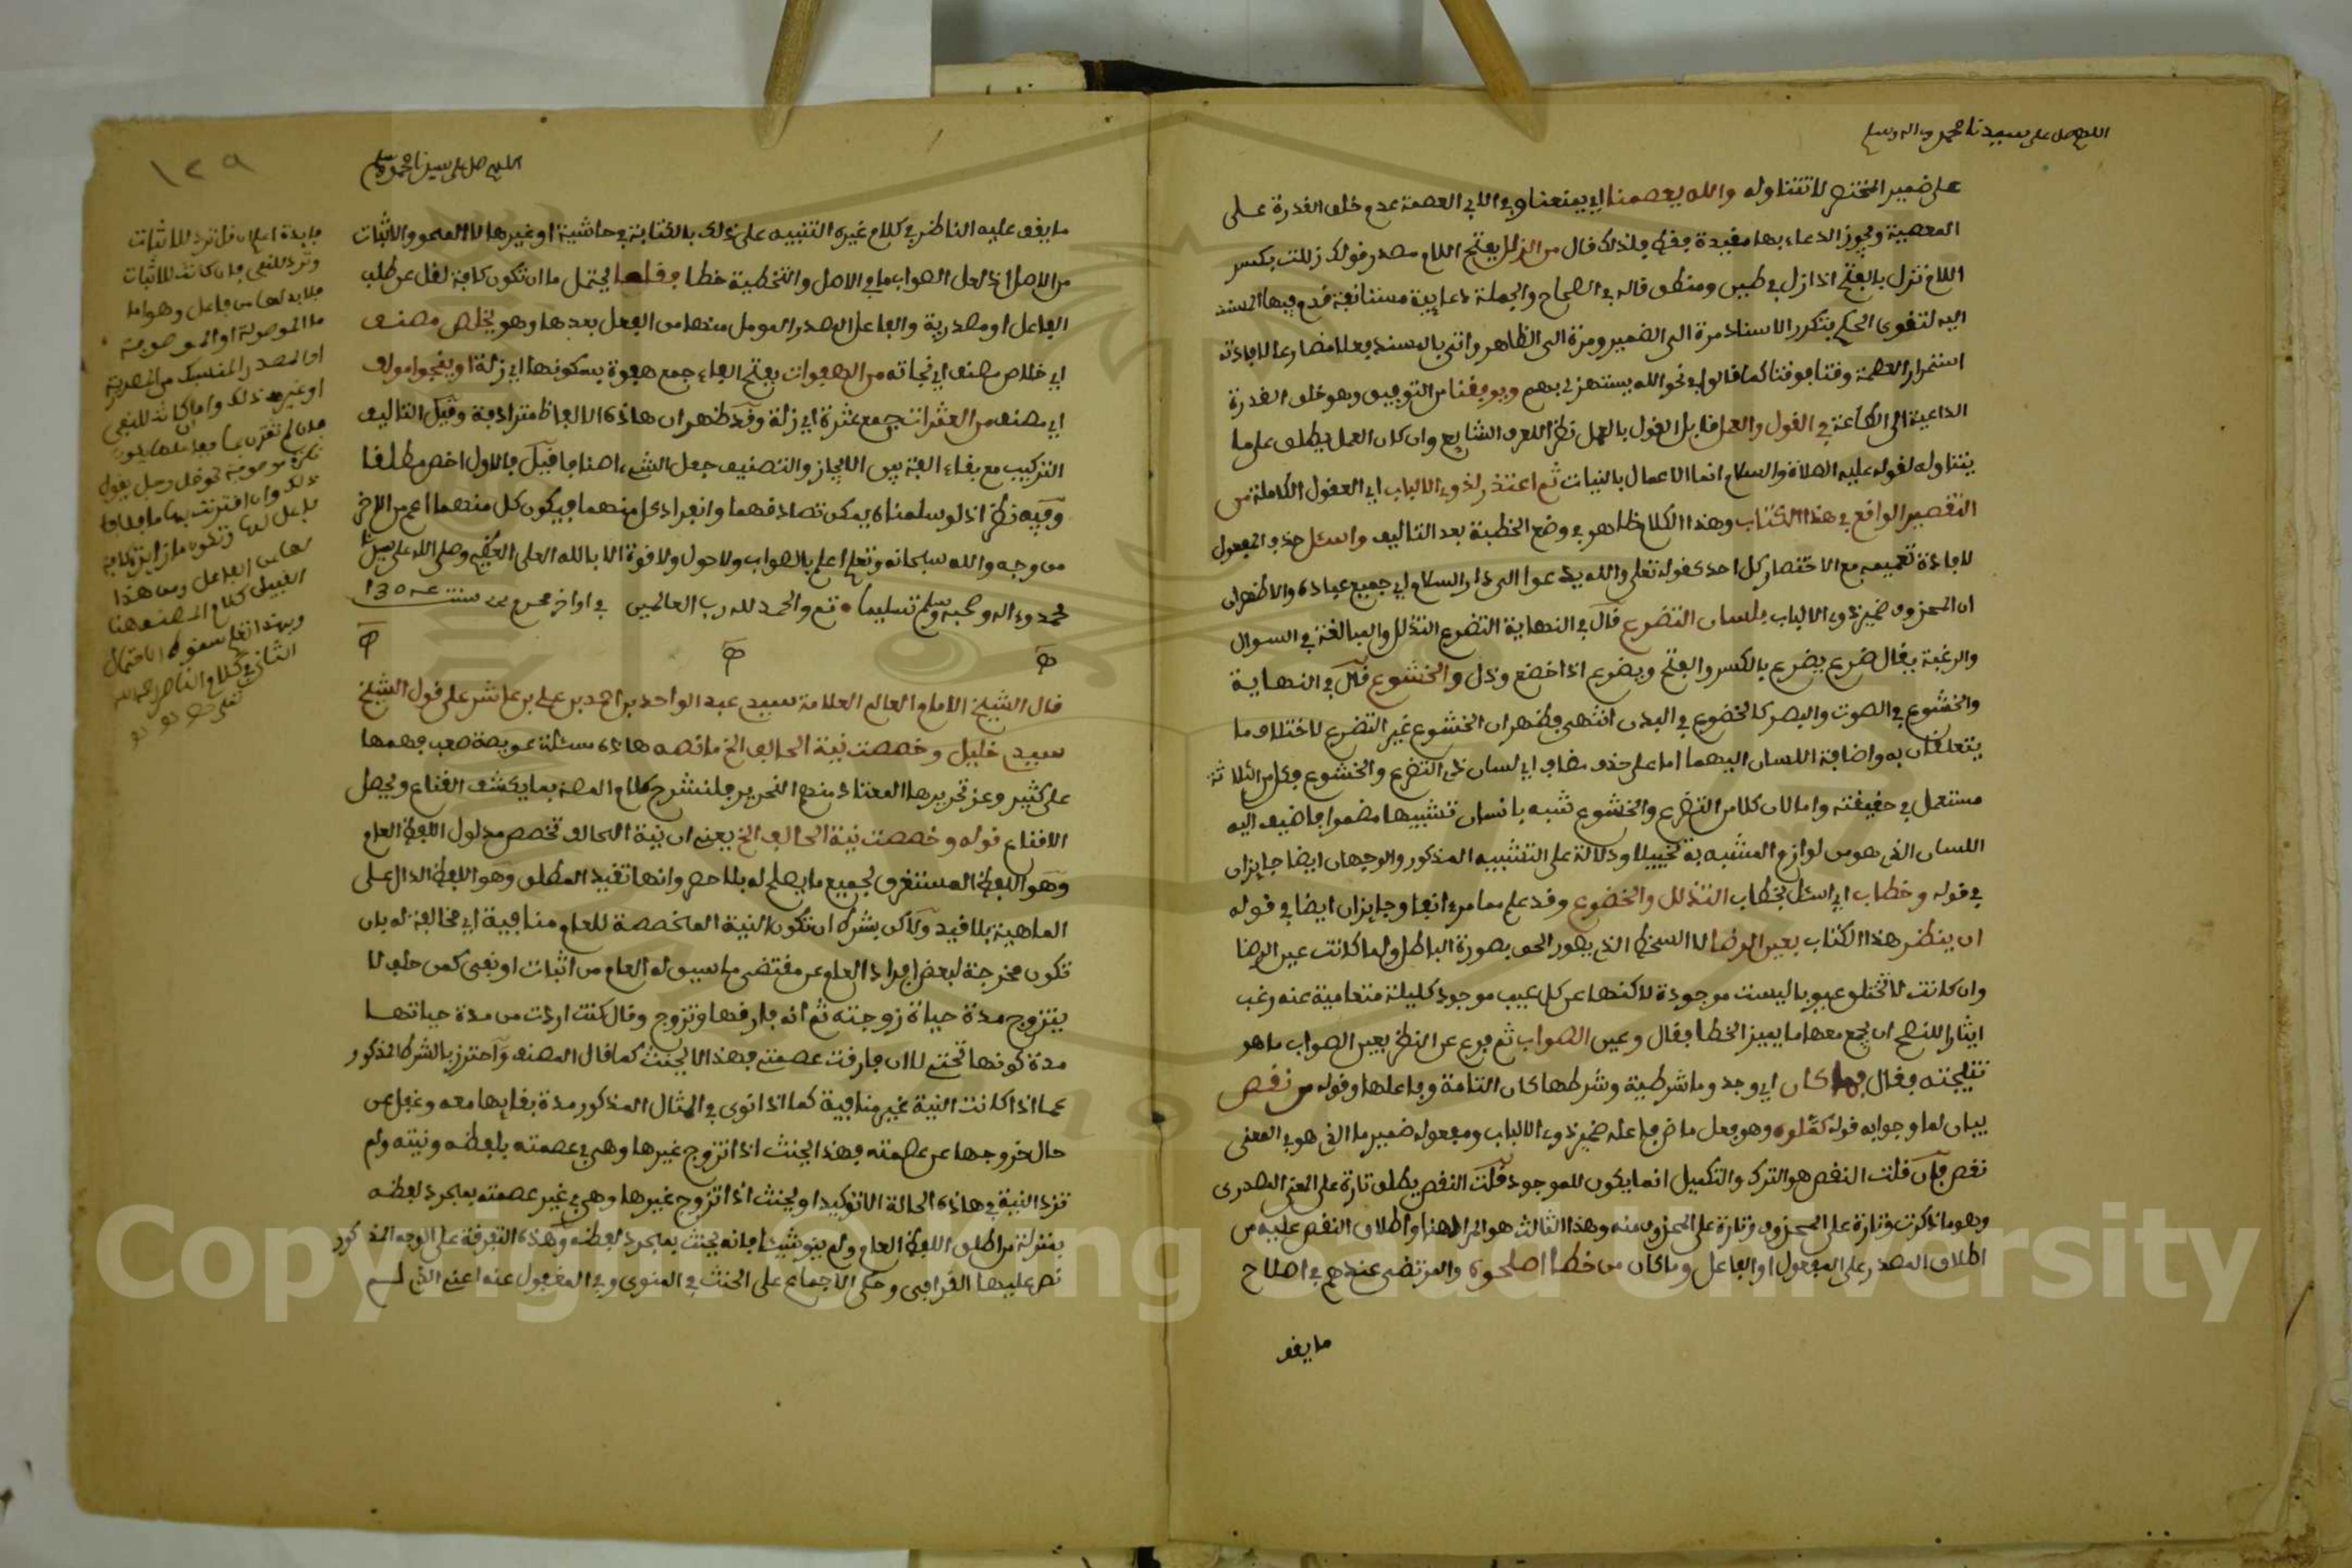 اللهم صل على سيدنا محمد وءاله وسلم
على ضمير المختصر لا تتناوله والله يعصمنا اي يمنعنا وفي الابي العصمة عدم خلق القدرة على
المعصية ويجوز الدعاء بها مقيدة فقط فلذلك قال من الزلل بفتح اللام مصدر قولك زللت بكسر
اللام تزل بالفتح اذا زل في طين ومنطق قاله في الصحاح والجملة دعايية مستانفة قدم فيها المسند
اليه لتقوى الحكم بتكرر الاسناد مرة الى الضمير ومرة الى الظاهر واتى بالمسند فعلا مضارعا لافادته
استمرار العصمة وقتا فوقتا كما قالوا في نحو الله يستهزئ بهم ويوفقنا من التوفيق وهو خلق القدرة
الداعية الى الطاعة في القول والعمل قابل القول بالعمل نظرا للعرف الشايع وان كان العمل يطلق على ما
يتناوله لقوله عليه الصلاة والسلام انما الاعمال بالنيات ثم اعتذر لذوي الالباب اي العقول الكاملة من
التقصير الواقع في هذا الكتاب وهذا الكلام ظاهر في وضع الخطبة بعد التاليف واسئل حذف المفعول
لافادة تعميمه مع الاختصار كل احد كقوله تعلى والله يدعوا الى دار السلام اي جميع عباده والاظهر ان
ان المحذوف ضمير ذوي الالباب بلسان التضرع قال في النهاية التضرع التذلل والمبالغة في السوال
والرغبة يقال ضرع يضرع بالكسر والفتح ويضرع اذا خضع وذل والخشوع قال في النهاية
والخشوع في الصوت والبصر كالخضوع في البدن انتهى فظهر ان الخشوع غير التضرع لاختلاف ما
يتعلقان به واضافة اللسان اليهما اما على حذف مضاف اي لسان ذي التضرع والخشوع وكل من الثلاثة
مستعمل في حقيقته واما لان كلا من التضرع والخشوع شبه بانسان تشبيها مضمرا فاضيف اليه
اللسان الذي هو من لوازم المشبه به تخييلا ودلالة على التشبيه المذكور والوجهان ايضا جايزان
في قوله وخطاب اي اسئل بخطاب التذلل والخضوع وقد علم مما مر ءانفا وجايزان ايضا في قوله
ان ينظر هذا الكتاب بعين الرضا لا السخط الذي يصور الحق بصورة الباطل ولما كانت عين الرضا
وان كانت لا تختلق عيوبا ليست موجودة لاكنها عن كل عيب موجود كليلة متعامية عنه رغب
ايثارا للنصح ان يجمع معها ما يميز الخطا فقال وعين الصواب ثم فرع عن النظر بعين الصواب ما هو
نتيجته فقال فما كان اي وجد وما شرطية وشرطها كان التامة وفاعلها وقوله من نقص
بيان لما وجوابه قوله كملوه وهو فعل ماض فاعله ضمير ذوي الالباب ومفعوله ضمير ما الذي هو في المعنى
نقص فان قلت النقص هو الترك والتكميل انما يكون للموجود قلت النقص يطلق تارة على المعنى المصدري
وهو ما ذكرت وتارة على المحذوف وتارة على المحذوف منه وهذا الثالث هو المراد هنا واطلاق النقص عليه من
اطلاق المصدر على المفعول او الفاعل وما كان من خطا اصلحوه والمرتضى عندهم في اصلاح
ما يقف
١٢٩
اللهم صل على سيدنا محمد وءاله
ما يقف عليه الناظر في كلام غيره التنبيه على ذلك بالكتابة في حاشية او غيرها لا المحو والاثبات
من الاصل اذ لعل الصواب ما في الاصل والتخطية خطا فقلما يحتمل ما ان تكون كافة لقل عن طلب
الفاعل او مصدرية والفاعل المصدر الموول منها من الفعل بعدها وهو يخلص مصنف
اي خلاص مصنف اي نجاته من الهفوات بفتح الفاء جمع هفوة بسكونها اي زلة او ينجوا مولف
اي مصنف من العثرات جمع عثرة اي زلة وقد ظهر ان هاذه الالفاظ مترادفة وقيل التاليف
التركيب مع بقاء الفة بين الاجزاء والتصنيف جعل الشيء اصنافا فقيل فالاول اخص مطلقا
وفيه نظر اذ لو سلمناه يمكن تصادقهما وانفراد كل منهما فيكون كل منهما اعم من الاخر
من وجه والله سبحانه وتعلى اعلم بالصواب ولا حول ولا قوة الا بالله العلي العظيم وصلى الله على سيدنا
محمد وءاله وصحبه وسلم تسليما تم والحمد لله رب العالمين في اواخر محرم سنة
قال الشيخ الامام العالم العلامة سيدي عبد الواحد بن احمد بن علي بن عاشر على قول الشيخ
سيدي خليل وخصصت نية الحالف الخ ما نصه هاذه مسئلة عويصة صعب فهمها
على كثير وعز تحريرها المعتاد منهم التحرير فلنشرح كلام المصنف بما يكشف القناع ويحصل
الاقناع قوله وخصصت نية الحالف الخ يعني ان نية الحالف تخصص مدلول اللفظ العام
وهو اللفظ المستغرق لجميع ما يصلح له بلا حصر وانها تقيد المطلق وهو اللفظ الدال على
الماهية بلا قيد ولاكن بشرط ان تكون النية المخصصة للعام منافية اي مخالفة له بان
تكون مخرجة لبعض افراد العام عن مقتضى ما سيق له العام من اثبات او نفي كمن حلف لا
يتزوج مدة حياة زوجته ثم انه فارقها وتزوج وقال كنت اردت من مدة حياتها
مدة كونها تحتي لا ان فارقت عصمتي فهذا لا يحنث كما قال المصنف واحترز بالشرط المذكور
عما اذا كانت النية غير منافية كما اذا نوى في المثال المذكور مدة بقايها معه وغفل عن
حال خروجها عن عصمته فهذا يحنث اذا تزوج غيرها وهي في عصمته بلفظه ونيته ولم
تزد النية في هاذه الحالة الا توكيدا ويحنث اذا تزوج غيرها وهي في غير عصمته بمجرد لفظه
بمنزلة من اطلق اللفظ العام ولم ينو شيئا فانه يحنث بمجرد لفظه وهذه التفرقة على الوجه المذكور
نص عليها القرافي وحكى الاجماع على الحنث في المنوي وفي المغفول عنه اعني الذي لم
فايدة اعلم ان قل ترد للاثبات
وترد للنفي فان كانت للاثبات
فلا بد لها من فاعل وهو اما
ما الموصولة او الموصوفة
او المصدر المنسبك من المصدرية
او غير ذلك واما ان كانت للنفي
فان لم تقترن بما ففاعلها يكون
نكرة موصوفة نحو قل رجل يقول
ذلك وان اقترنت بما فلا
فاعل لها وتكون ما زايدة كافة
لها عن الفاعل ومن هذا
القبيل كلام المصنف هنا
وبهذا تعلم سقوط الاحتمال
الثاني في كلام الناصر رحمه الله